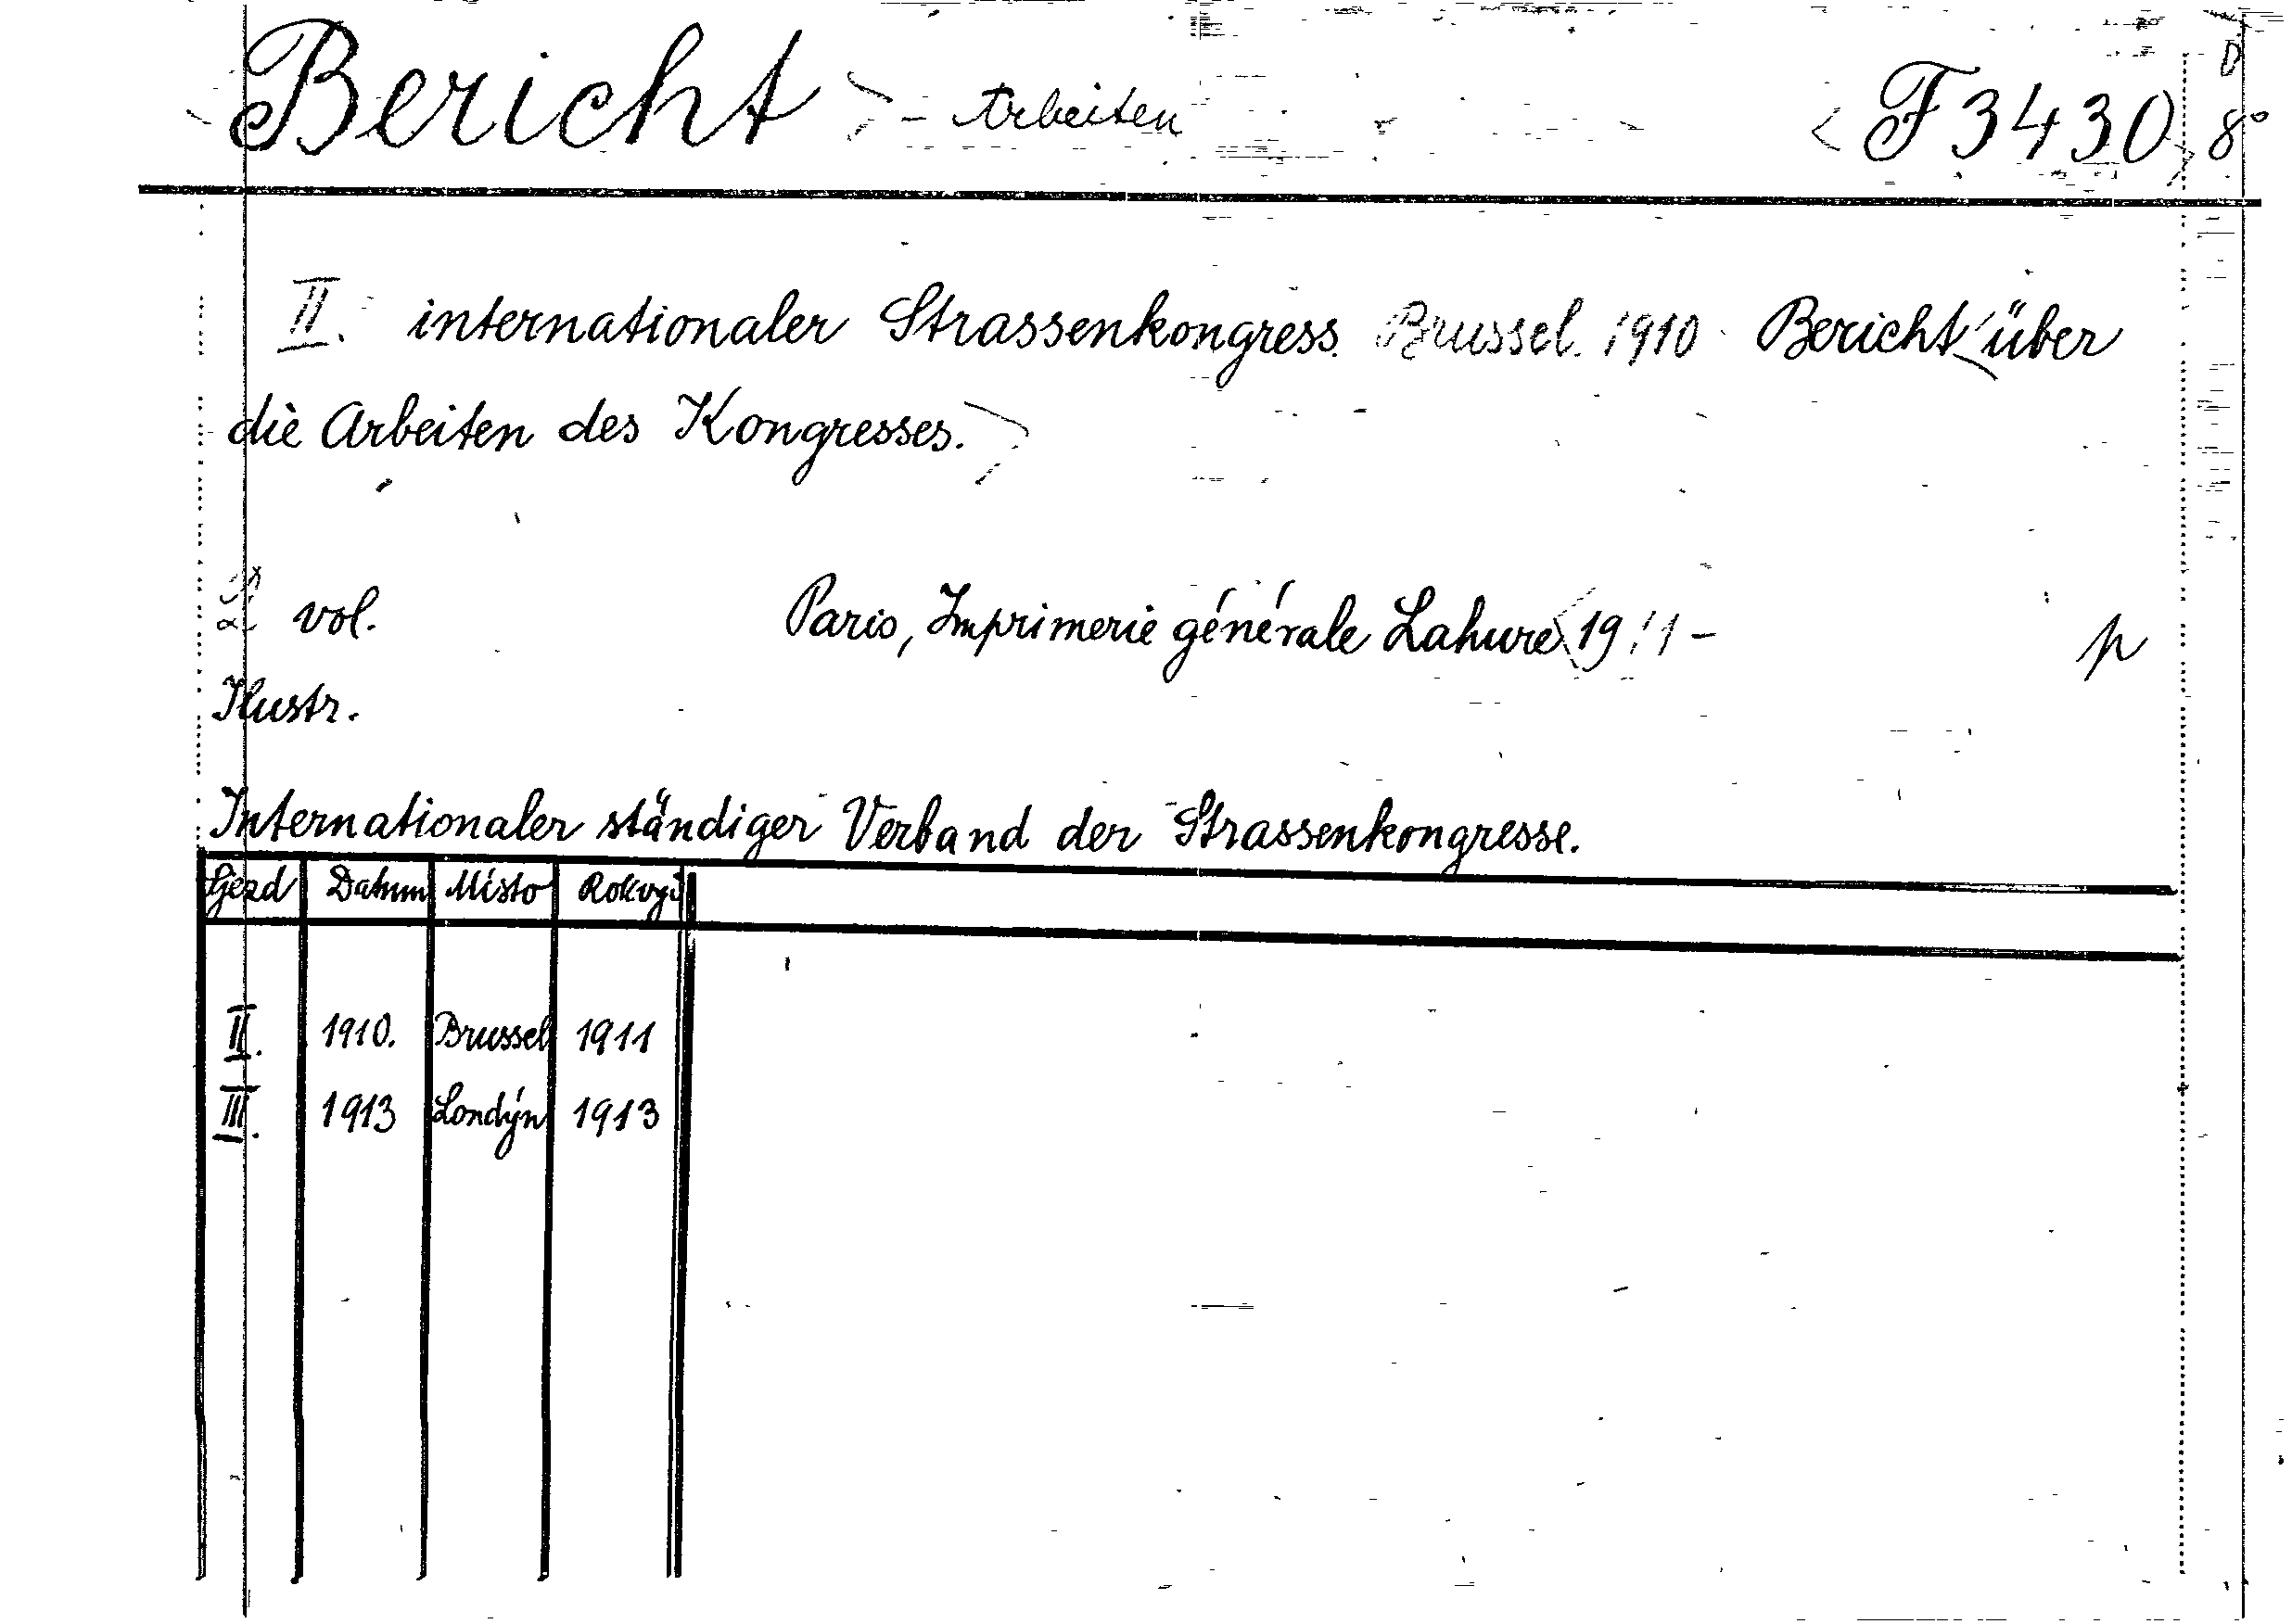 Bericht - Arbeiten F 3430 8°
II. internationaler Strassenkongress. Brussel. 1910 Bericht über
die Arbeiten des Kongresses.
vol. Paris, Imprimerie générale Lahure 1911 - p
Ilustr.
Internationaler ständiger Verband der Strassenkongresse.
Sjezd Datum Místo Rok vyd
II. 1910. Brussel 1911
III. 1913 Londýn 1913